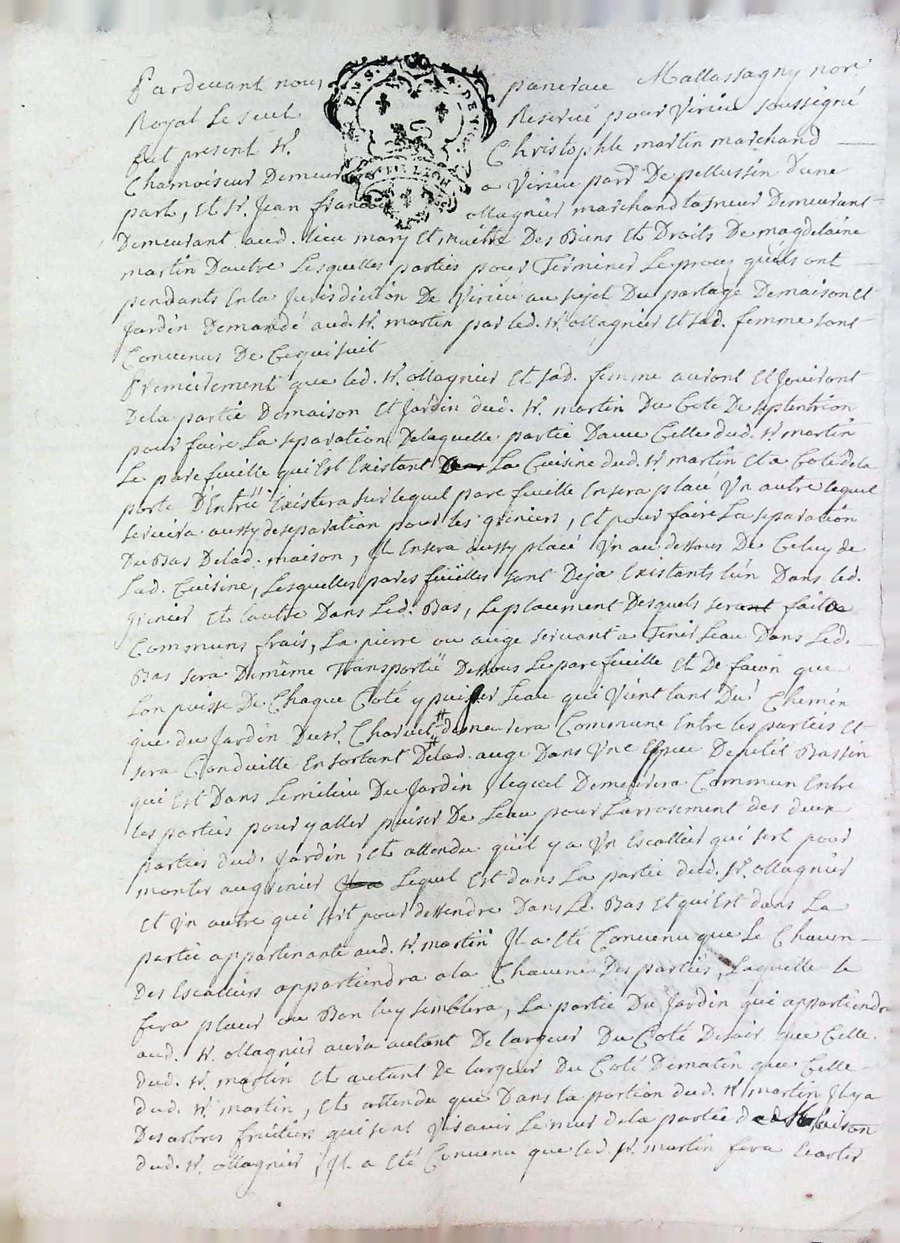 Pardevant nous pancrace Mallassagny nore
Royal Le seul Reservé pour Virieu soussigné
fut present Sr. Christophle martin marchand
Chamoiseur Demeur a Virieu parr. De pellussin d'une
part, et Sr. Jean francois ollagnier marchand taneur Demeurant
Demeurant aud. lieu mary et maitre Des Biens et Droits De magdelaine
martin D'autre Lesquelles parties pour Terminer Le proces qu'ils ont
pendants En la Jurisdiction De Virieu au sujet Du partage De maison et
Jardin Demandé aud. Sr. martin par led. Sr. ollagnier et sad. femme sont
Convenus De Ce qui suit
Premierement que led. Sr. ollagnier et sad. femme auront et Jouiront
De la partie De maison et Jardin dud. Sr. martin Du Coté De septentrion
pour faire La separation De laquelle partie D'avec Celle dud. Sr. martin
Le pare feuille qui Est Existant La Cuisine dud. Sr. martin et a Coté de la
porte D'Entrée Existera sur lequel pare feuille En sera placé Un autre lequel
servira aussy de separation pour les greniers, et pour faire La separation
Du Bas De lad. maison, Il En sera aussy placé Un au dessous De Celuy de
Lad. Cuisine, Lesquelles pares feuilles sont Deja Existants l'un Dans led.
grenier et l'autre Dans Led. Bas, Le placement Desquels sera fait a
Communs frais, La pierre ou auge servant a Tenir L'eau Dans Led.
Bas sera De même Transportée Dessous Le pare feuille et De facon que
L'on puisse De Chaque Coté y puiser L'eau qui Vient tant Du Chemin
que du Jardin Du Sr. Charvet, demeurera Commune Entre les parties et
sera Conduitte En sortant De lad. auge Dans Une Espece De petit Bassin
qui Est Dans Le milieu Du Jardin lequel Demeurera Commun Entre
les parties pour y aller puiser De L'eau pour L'arrosement des deux
parties dud. Jardin, et attendu qu'il y a Un Escallier qui sert pour
monter au grenier Lequel Est dans La partie dud. Sr. ollagnier
et Un autre qui sert pour dessendre Dans Le Bas et qui Est dans La
partie appartenante aud. Sr. martin Il a Eté Convenu que Le Chacun
Des Escaliers appartiendra a la Chacune Des parties, Laquelle le
fera placer ou Bon luy semblera, La partie Du Jardin qui appartiendra
aud. Sr. ollagnier aura autant De largeur Du Coté De soir que Celle
dud. Sr. martin et autant de largeur Du Coté De matin que Celle
dud. Sr. martin, et attendu que Dans la portion dud. Sr. martin Il y a
Des arbres fruitiers qui sont Vis avis Le mur de la partie de Maison
dud. Sr. ollagnier, Il a Eté Convenu que led. Sr. martin fera Ecarter